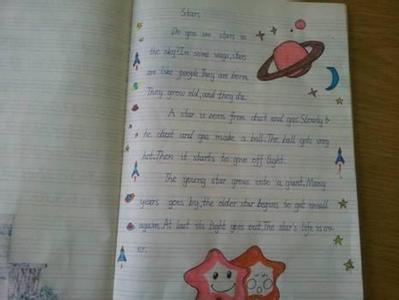 Stars
Do you see stars in
the sky? In some ways, stars
are like people. They are born.
They grow old, and they die.
A star is born from dust and gas. Slowly t
he dust and gas make a ball. The ball gets very
hot. Then it starts to give off light.
The young star grows into a giant. Many
years goes by, the older star begins to get small
again. At last its light goes out. The star's life is ov
er.